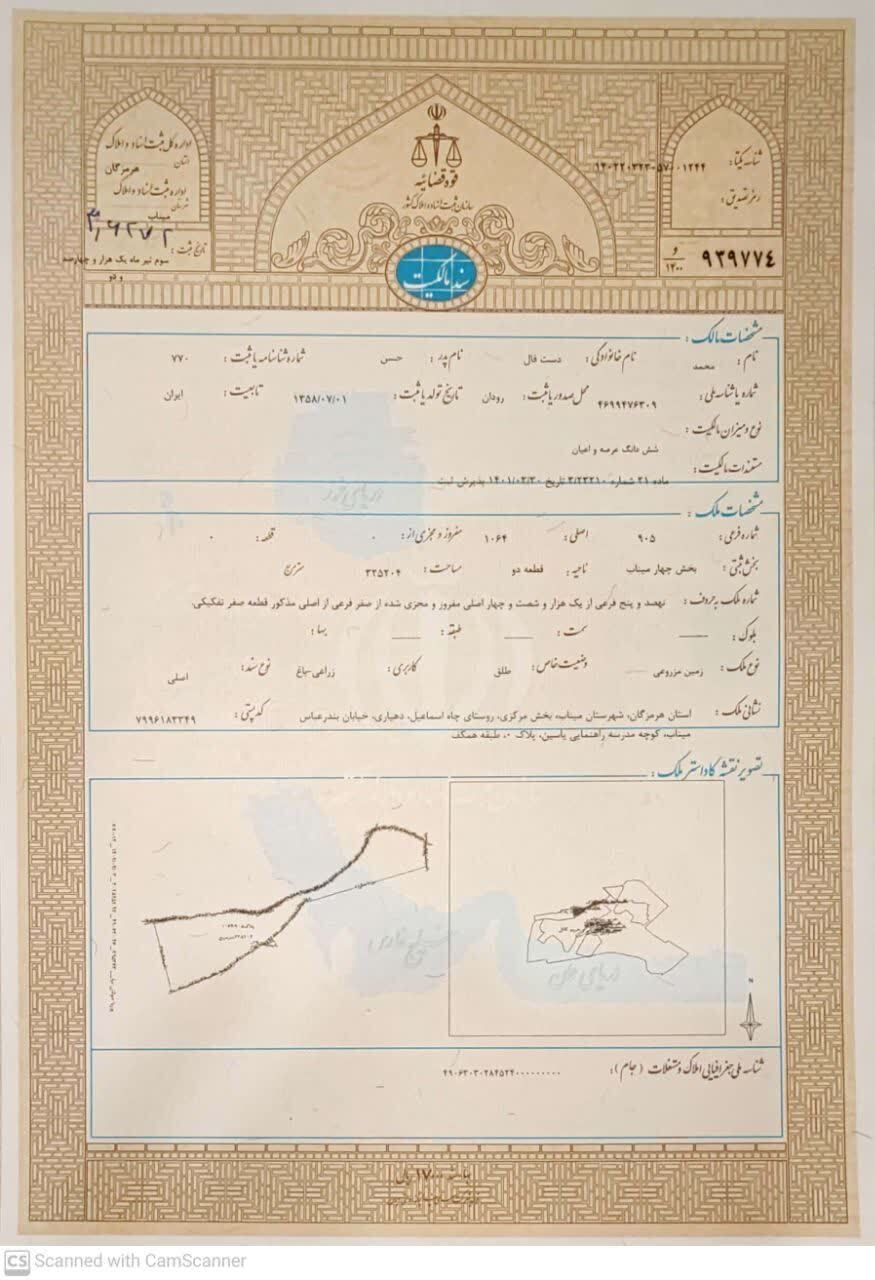 قوه قضائیه
سازمان ثبت اسناد و املاک کشور
سند مالکیت
شناسه یکتا: ۱۴۰۲۲۰۳۲۳۰۵۷۰۰۱۲۴۴
رمز تصدیق:
۹۳۹۷۷۴ و ۱۴۰۰
اداره کل ثبت اسناد و املاک
استان هرمزگان
اداره ثبت اسناد و املاک
شهرستان میناب
تاریخ ثبت: سوم تیر ماه یک هزار و چهارصد و دو
مشخصات مالک:
نام: محمد نام خانوادگی: دست فال نام پدر: حسن شماره شناسنامه یا ثبت: ۷۷۰
شماره یا شناسه ملی: ۴۶۹۹۴۷۶۳۰۹ محل صدور یا ثبت: رودان تاریخ تولد یا ثبت: ۱۳۵۸/۰۷/۰۱ تابعیت: ایران
نوع و میزان مالکیت: شش دانگ عرصه و اعیان
مستندات مالکیت: ماده ۲۱ شماره ۳/۲۳۲۱۰ تاریخ ۱۴۰۱/۰۳/۳۰ پذیرش ثبت
دریای خزر
مشخصات ملک:
شماره فرعی: ۹۰۵ اصلی: ۱۰۶۴ مفروز و مجزی از: ۰ قطعه: ۰
بخش ثبتی: بخش چهار میناب ناحیه: قطعه دو مساحت: ۳۲۵۲۰۴ مترمربع
شماره ملک به حروف: نهصد و پنج فرعی از یک هزار و شصت و چهار اصلی مفروز و مجزی شده از صفر فرعی از اصلی مذکور قطعه صفر تفکیکی.
بلوک: ـــــ سمت: ـــــ طبقه: ـــــ بها:
نوع ملک: زمین مزروعی وضعیت خاص: طلق کاربری: زراعی-باغ نوع سند: اصلی
نشانی ملک: استان هرمزگان، شهرستان میناب، بخش مرکزی، روستای چاه اسماعیل، دهیاری، خیابان بندرعباس کد پستی: ۷۹۹۶۱۸۳۳۴۹
میناب، کوچه مدرسه راهنمایی یاسین، پلاک ۰، طبقه همکف
تصویر نقشه کاداستر ملک:
خلیج فارس
دریای عمان
N
شناسه ملی جغرافیایی املاک و مستغلات (جام): ۴۹۰۶۳۰۳۰۲۸۴۵۲۴۰۰۰۰۰۰۰۰۰۰
CS Scanned with CamScanner